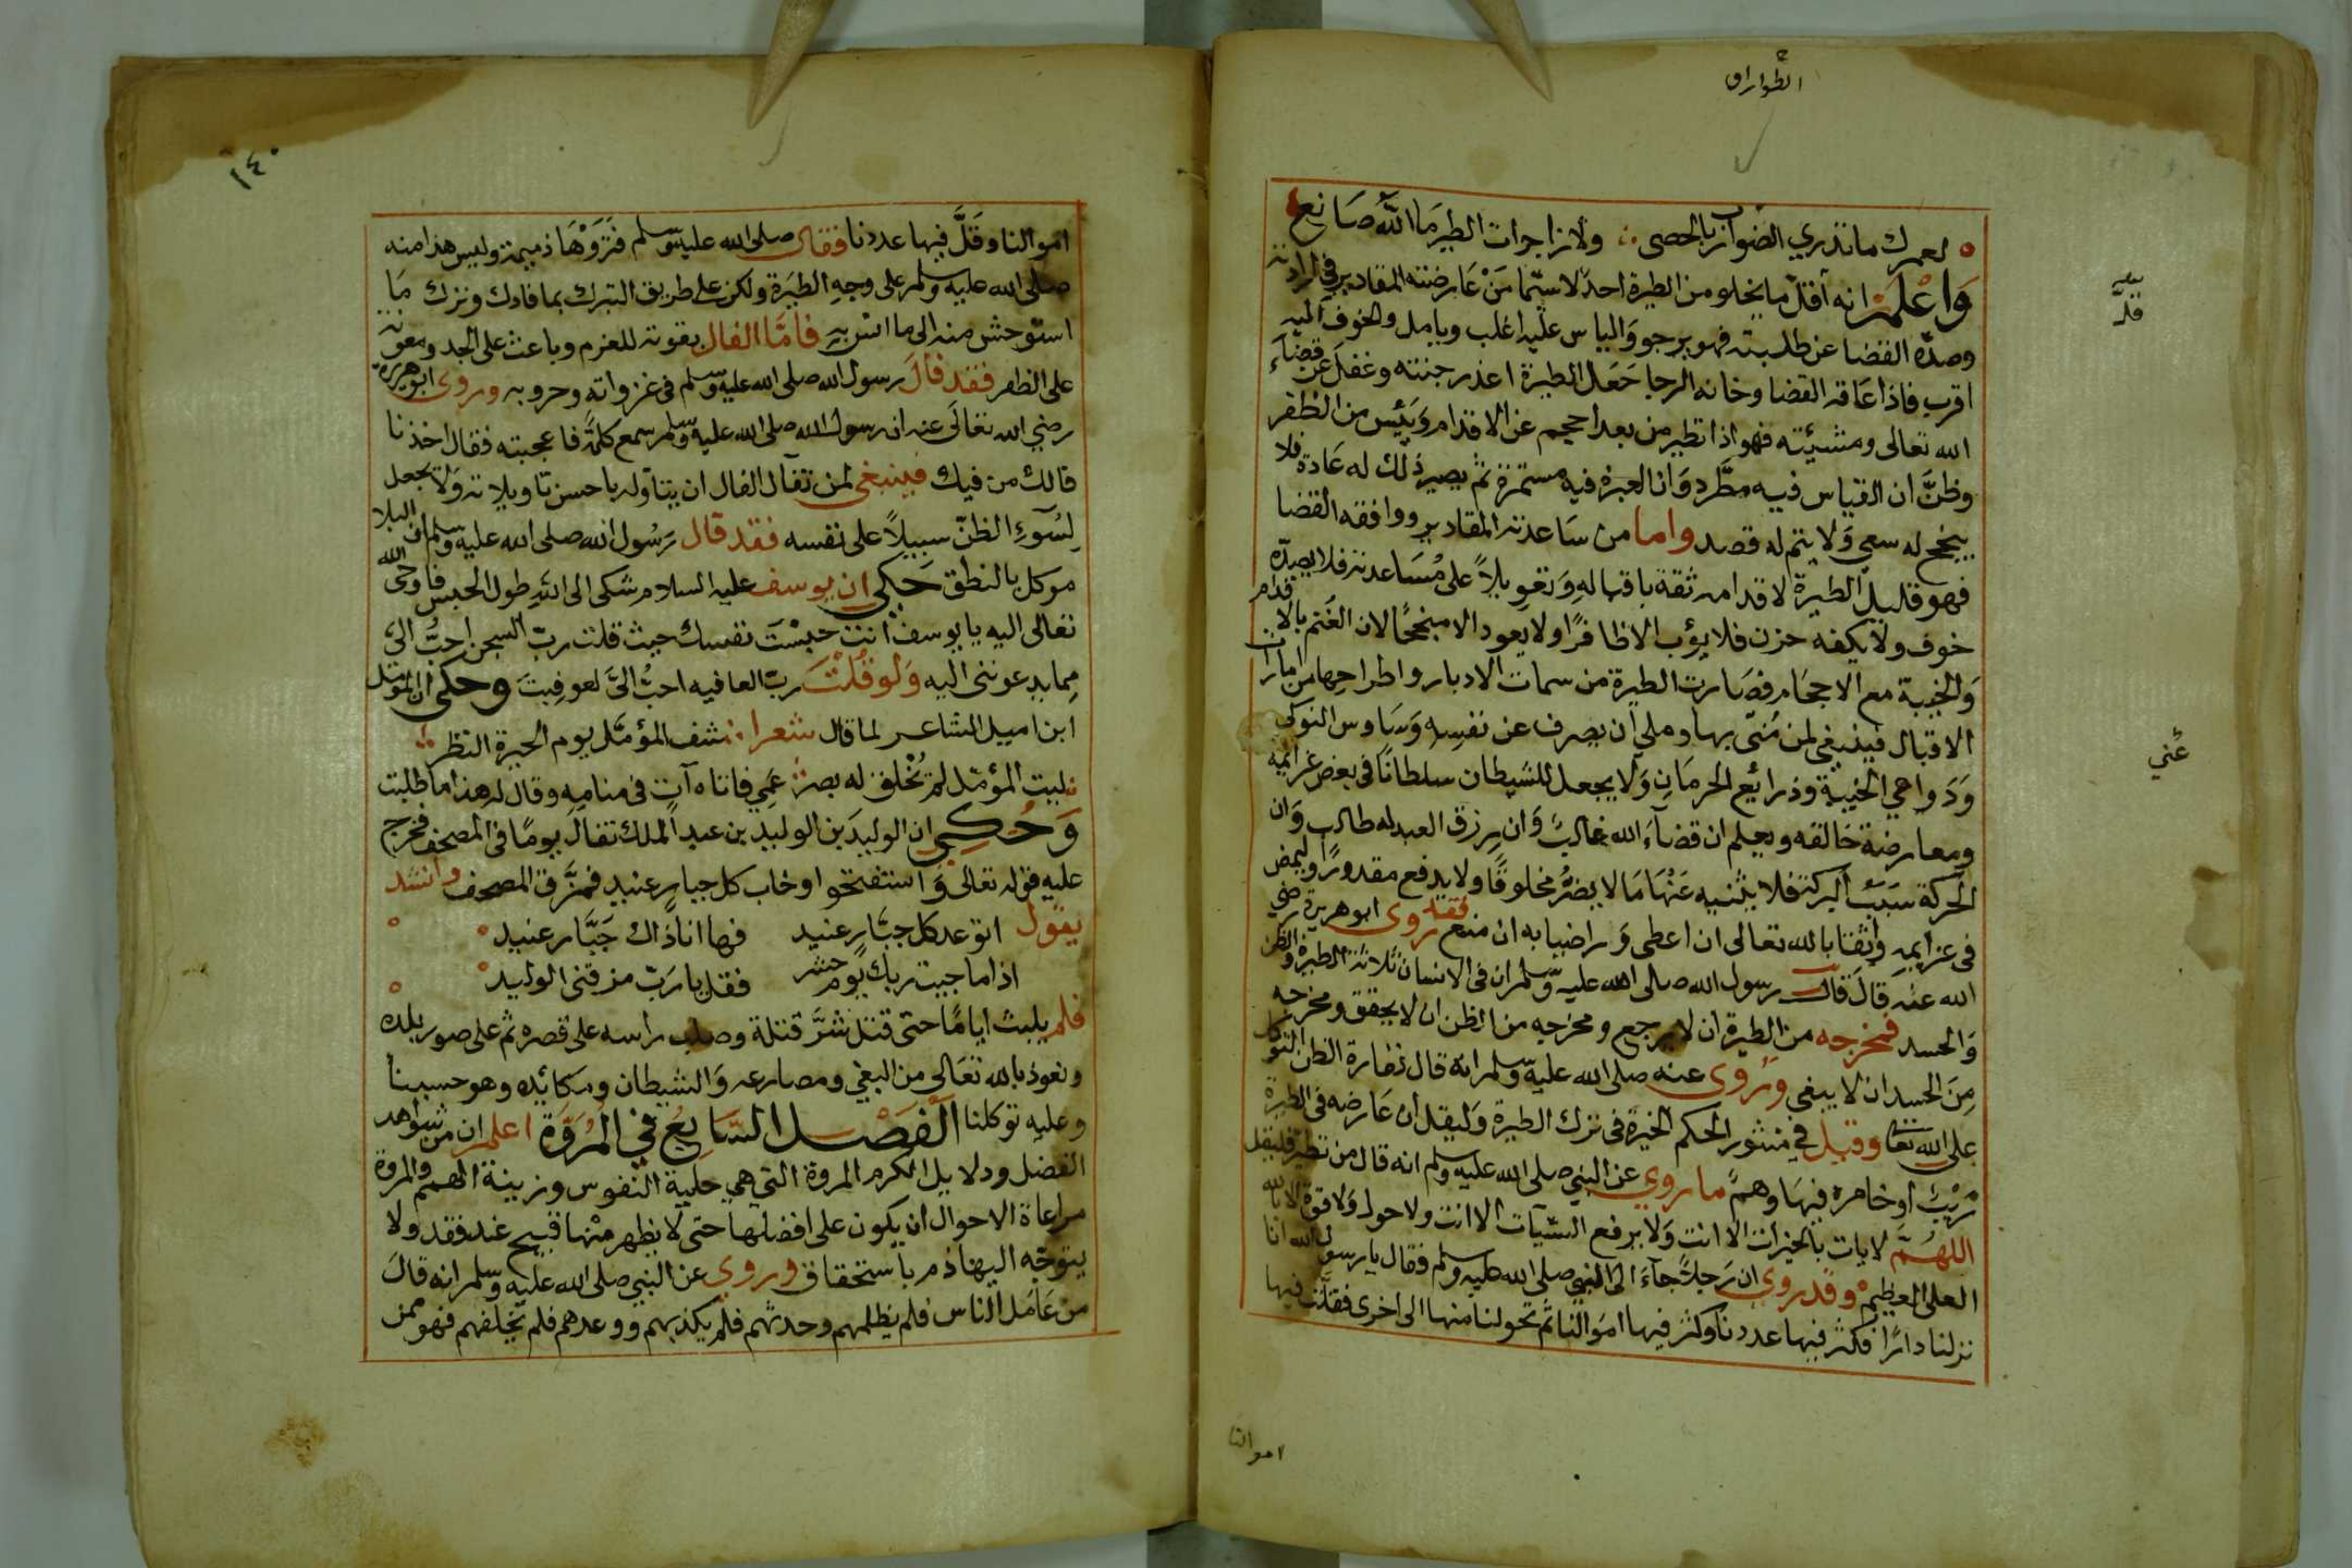 الطوارق
لعمرك ما تدري الضوارب بالحصى ولا زاجرات الطير ما الله صانع
واعلم انه اقل ما يخلو من الطيرة احد لا سيما من عارضته المقادير في ارادته
وصده القضا عن طلبته فهو يرجو والياس عليه اغلب ويامل والخوف اليه
اقرب فاذا عاقه القضا وخانه الرجا جعل الطيرة اعذر جنته وغفل عن قضاء
الله تعالى ومشيئته فهو اذا تطير من بعد احجم عن الاقدام ويئس من الظفر
وظن ان القياس فيه مطرد وان العبرة فيه مستمرة ثم يصير ذلك له عادة فلا
ينجح له سعي ولا يتم له قصد واما من ساعدته المقادير ووافقه القضا
فهو قليل الطيرة لاقدامه ثقة باقباله وتعويلا على مساعدته فلا يصده
خوف ولا يكفه حزن فلا يؤب الا ظافرا ولا يعود الا منجحا لان الغنم بالاقدام
والخيبة مع الاحجام فصارت الطيرة من سمات الادبار واطراحها من امارات
الاقبال فينبغي لمن مني بها وملي ان يصرف عن نفسه وساوس النوكى
ودواهي الخيبة وذرائع الحرمان ولا يجعل للشيطان سلطانا في بعض عزائمه
ومعارضة خالقه ويعلم ان قضاء الله غالب وان رزق العبد له طالب وان
الحركة سبب البركة فلا يثنيه عنها ما لا يضر مخلوقا ولا يدفع مقدورا وليمض
في عزايمه واثقا بالله تعالى ان اعطى وراضيا به ان منع فقد روى ابو هريرة رضي
الله عنه قال قال رسول الله صلى الله عليه وسلم ان في الانسان ثلاثة الطيرة والظن
والحسد فمخرجه من الطيرة ان لا يرجع ومخرجه من الظن ان لا يحقق ومخرجه
من الحسد ان لا يبغي وروى عنه صلى الله عليه وسلم انه قال كفارة الظن التوكل
على الله تعا وقيل في منثور الحكم الخيرة في ترك الطيرة وليقل ان عارضه في الطيرة
ريب او خامره فيها وهم ما روي عن النبي صلى الله عليه وسلم انه قال من تطير فليقل
اللهم لا يات بالخيرات الا انت ولا يرفع السيآت الا انت ولا حول ولا قوة الا بالله
العلي العظيم وقد روي ان رجلا جاء الى النبي صلى الله عليه وسلم فقال يا رسول الله انا
نزلنا دارا فكثر فيها عددنا وكثر فيها اموالنا ثم تحولنا منها الى اخرى فقلت فيها
عني
اموالنا
١٤٠
اموالنا وقل فيها عددنا فقال صلى الله عليه وسلم فذروها ذميمة وليس هذا منه
صلى الله عليه وسلم على وجه الطيرة ولكن على طريق التبرك بما فادك وترك ما
استوحش منه الى ما انس به فاما الفال بقوته للعزم وباعث على الجد ومعونة
على الظفر فقد فال رسول الله صلى الله عليه وسلم في غزواته وحروبه وروى ابو هريرة
رضي الله تعالى عنه ان رسول الله صلى الله عليه وسلم سمع كلمة فاعجبته فقال اخذنا
فالك من فيك فينبغي لمن تفآل الفال ان يتاوله باحسن تاويلاته ولا يجعل
لسوء الظن سبيلا على نفسه فقد قال رسول الله صلى الله عليه وسلم ان البلا
موكل بالنطق حكي ان يوسف عليه السلام شكى الى الله طول الحبس فاوحى الله
تعالى اليه يا يوسف انت حبست نفسك حيث قلت رب السجن احب الي
مما يدعونني اليه ولو قلت رب العافيه احب الي لعوفيت وحكي ان المؤمل
ابن اميل الشاعر لما قال شعرا شف المؤمل يوم الحيرة النظر
ليت المؤمل لم تخلق له بصر عمي فاتاه آت في منامه وقال له هذا ما طلبت
وحكي ان الوليد بن الوليد بن عبد الملك تفال يوما في المصحف فخرج
عليه قوله تعالى واستفتحوا وخاب كل جبار عنيد فمزق المصحف وانشد
يقول اتوعد كل جبار عنيد فها انا ذاك جبار عنيد
اذا ما جيت ربك يوم حشر فقل يا رب مزقني الوليد
فلم يلبث اياما حتى قتل شر قتلة وصلب راسه على قصره ثم على صور بلده
ونعوذ بالله تعالى من البغي ومصارعه والشيطان ومكائده وهو حسبنا
وعليه توكلنا الفصل السابع في المروة اعلم ان من شواهد
الفضل ودلايل الكرم المروة التي هي حلية النفوس وزينة الهمم والمروة
مراعاة الاحوال ان يكون على افضلها حتى لا يظهر منها قبيح عند فقد ولا
يتوجه اليها ذم باستحقاق وروي عن النبي صلى الله عليه وسلم انه قال
من عامل الناس فلم يظلمهم وحدثهم فلم يكذبهم ووعدهم فلم يخلفهم فهو ممن